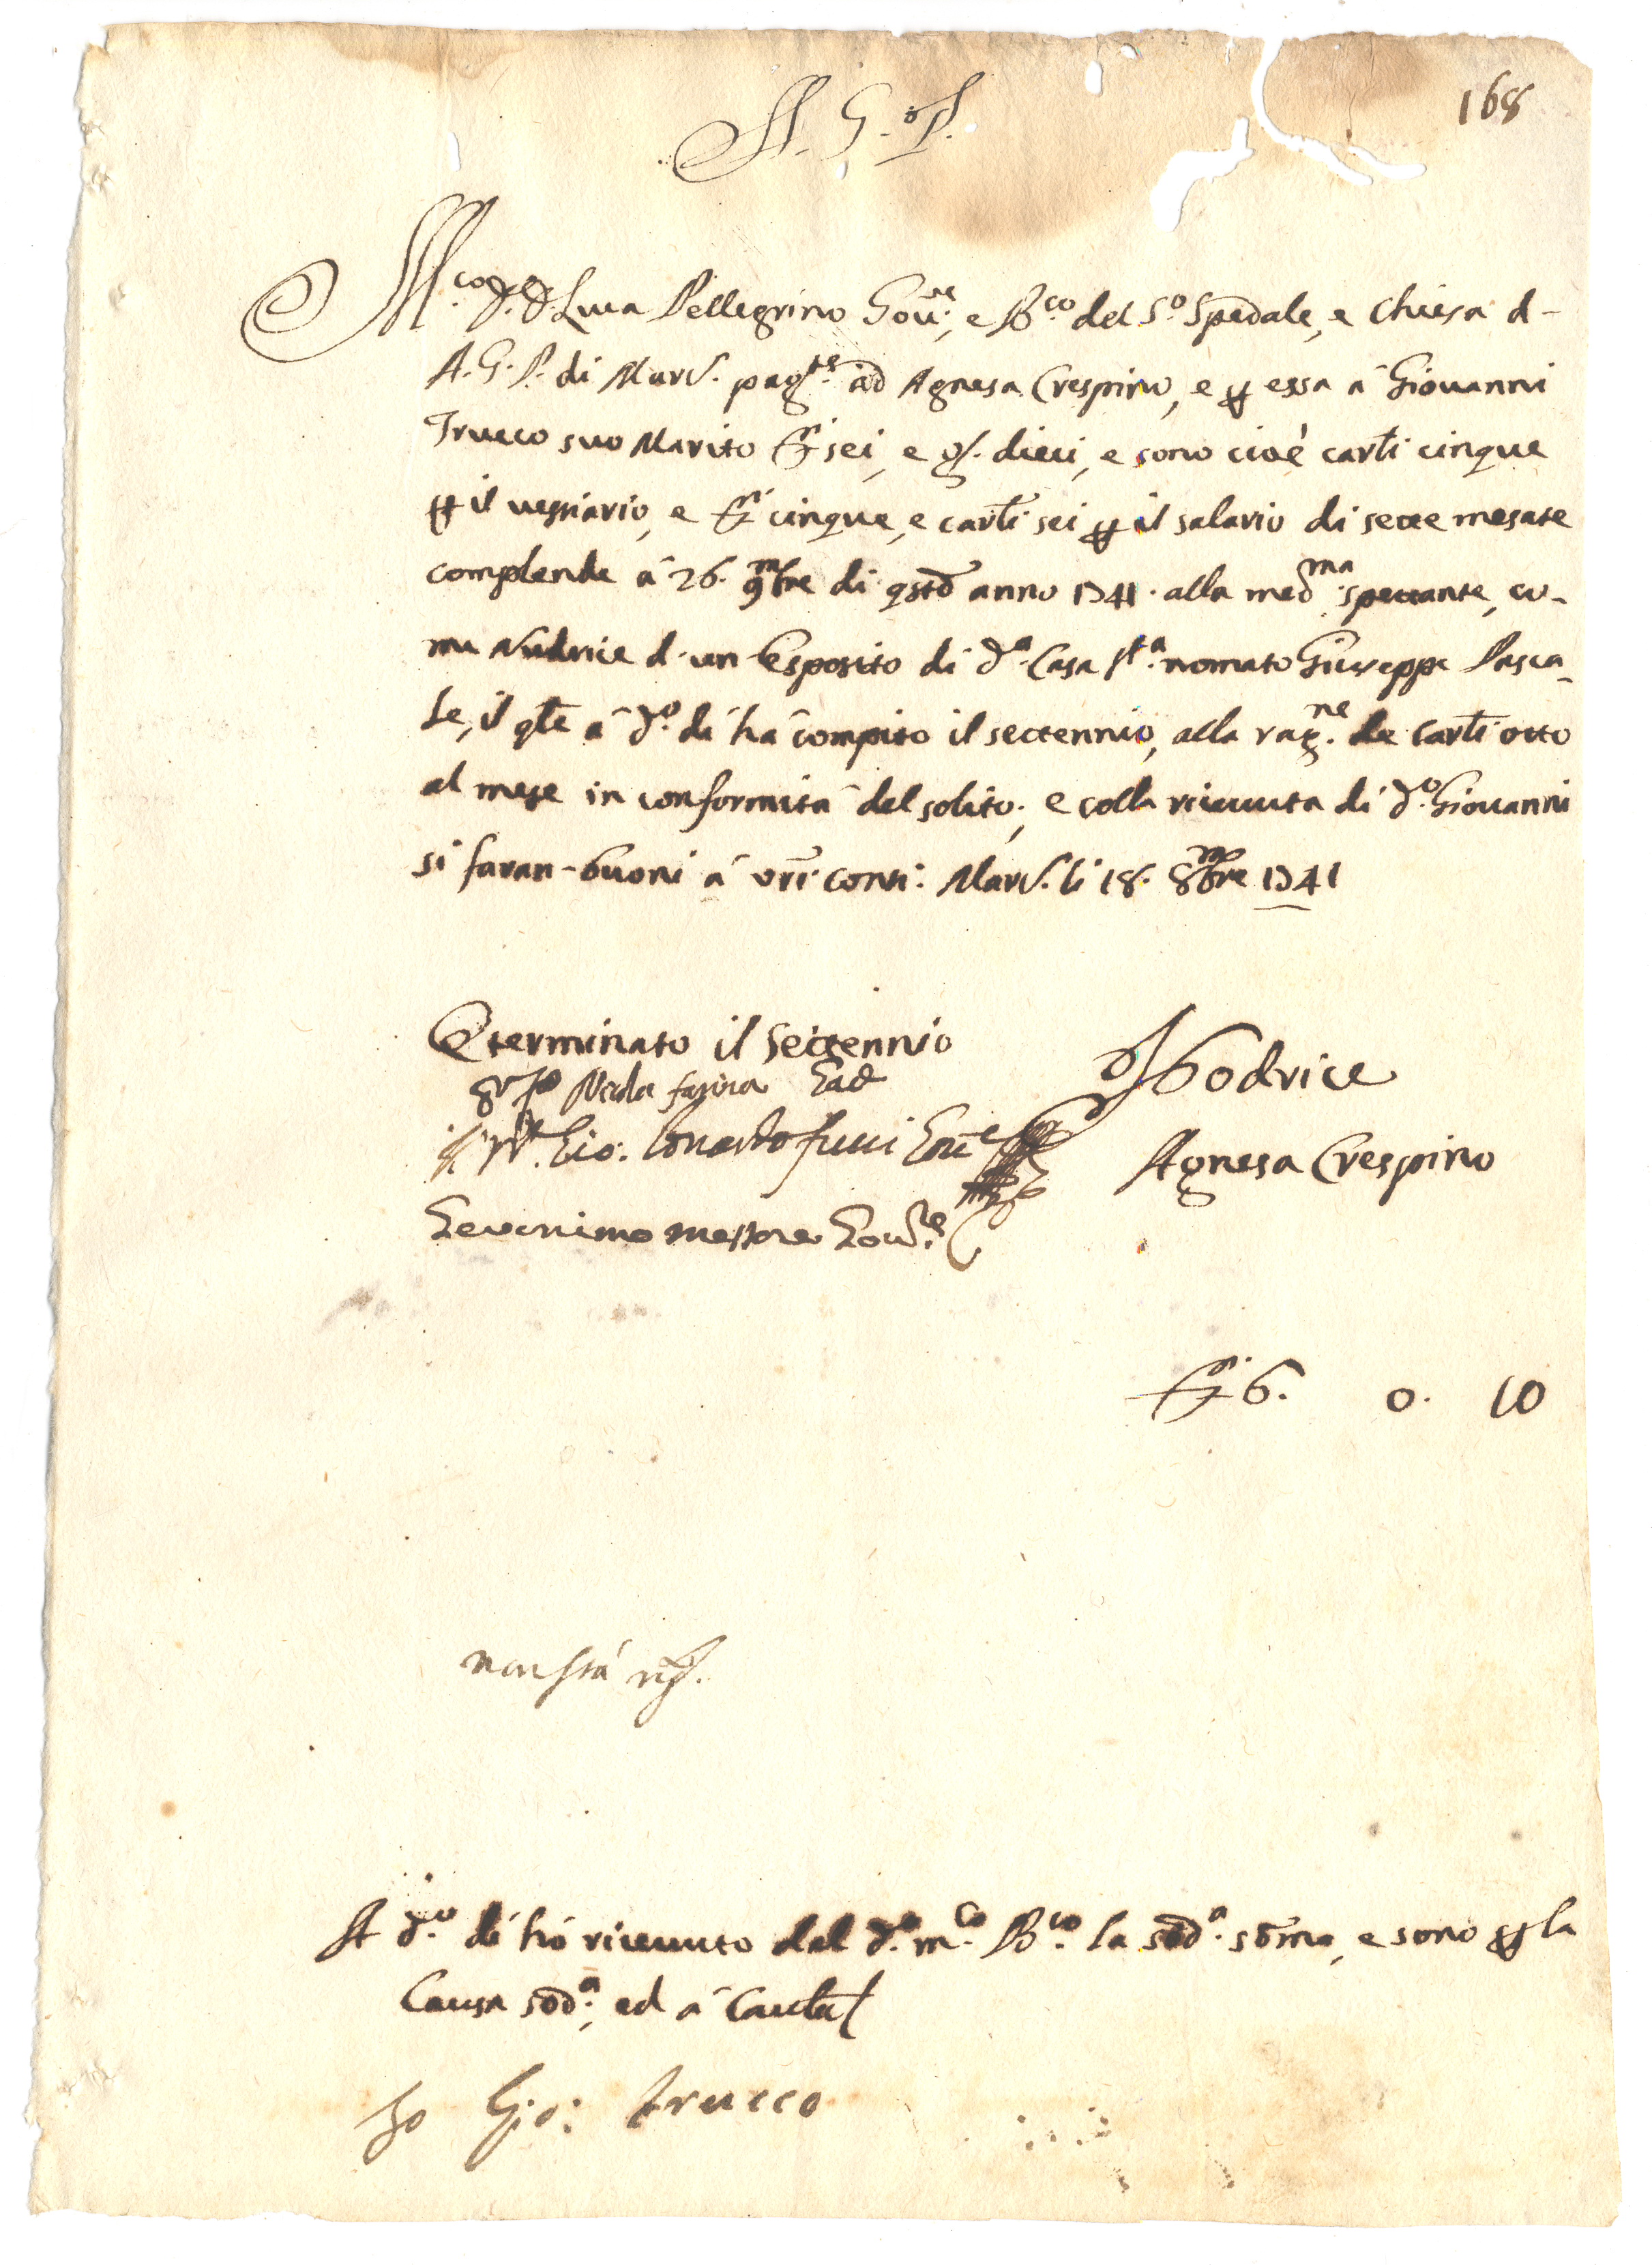 168
A. G. P.
M.co D. D. Luca Pellegrino Gov.re, e B.co del S.o Spedale, e Chiesa d-
A. G. P. di Mard. pag.te ad Agnesa Crespino, e p essa à Giovanni
Trucco suo Marito d.ti sei, e g. dieci, e sono cioè carli cinque
p il vestiario, e d.ti cinque, e carli sei p il salario di sette mesate
complende à 26. 9mbre di qsto anno 1741. alla med.ma spettante, co-
me Nudrice d'un Esposito di d.a Casa S.ta nomato Giuseppe Pasca-
le, il qle à d.o dì hà compito il settennio, alla rag.ne de Carli otto
al mese in conformità del solito; e colla ricevuta di d.o Giovanni
si faran buoni à vri conti: Mard. li 18. 8mbre 1741
È terminato il settennio
Nicola farina
Gio: Gov.e
Geronimo Gov.re
Nodrice
Agnesa Crespino
d.ti 6. 0. 10
non stà
A d.o dì hò ricevuto dal d.o m.co B.co la sod.a soma, e sono p la
Causa sod.a, ed à Cautela
Io Gio: trucco